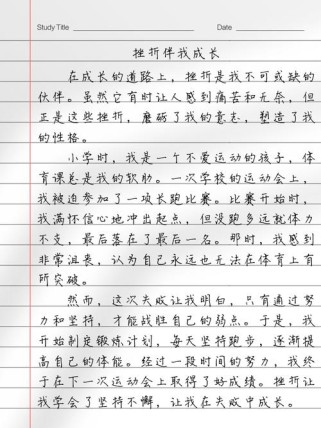 Study Title
Date
挫折伴我成长
在成长的道路上，挫折是我不可或缺的
伙伴。虽然它有时让人感到痛苦和无奈，但
正是这些挫折，磨砺了我的意志，塑造了我
的性格。
小学时，我是一个不爱运动的孩子，体
育课总是我的软肋。一次学校的运动会上，
我被迫参加了一项长跑比赛。比赛开始时，
我满怀信心地冲出起点，但没跑多远就体力
不支，最后落在了最后一名。那时，我感到
非常沮丧，认为自己永远也无法在体育上有
所突破。
然而，这次失败让我明白，只有通过努
力和坚持，才能战胜自己的弱点。于是，我
开始制定锻炼计划，每天坚持跑步，逐渐提
高自己的体能。经过一段时间的努力，我终
于在下一次运动会上取得了好成绩。挫折让
我学会了坚持不懈，让我在失败中成长。